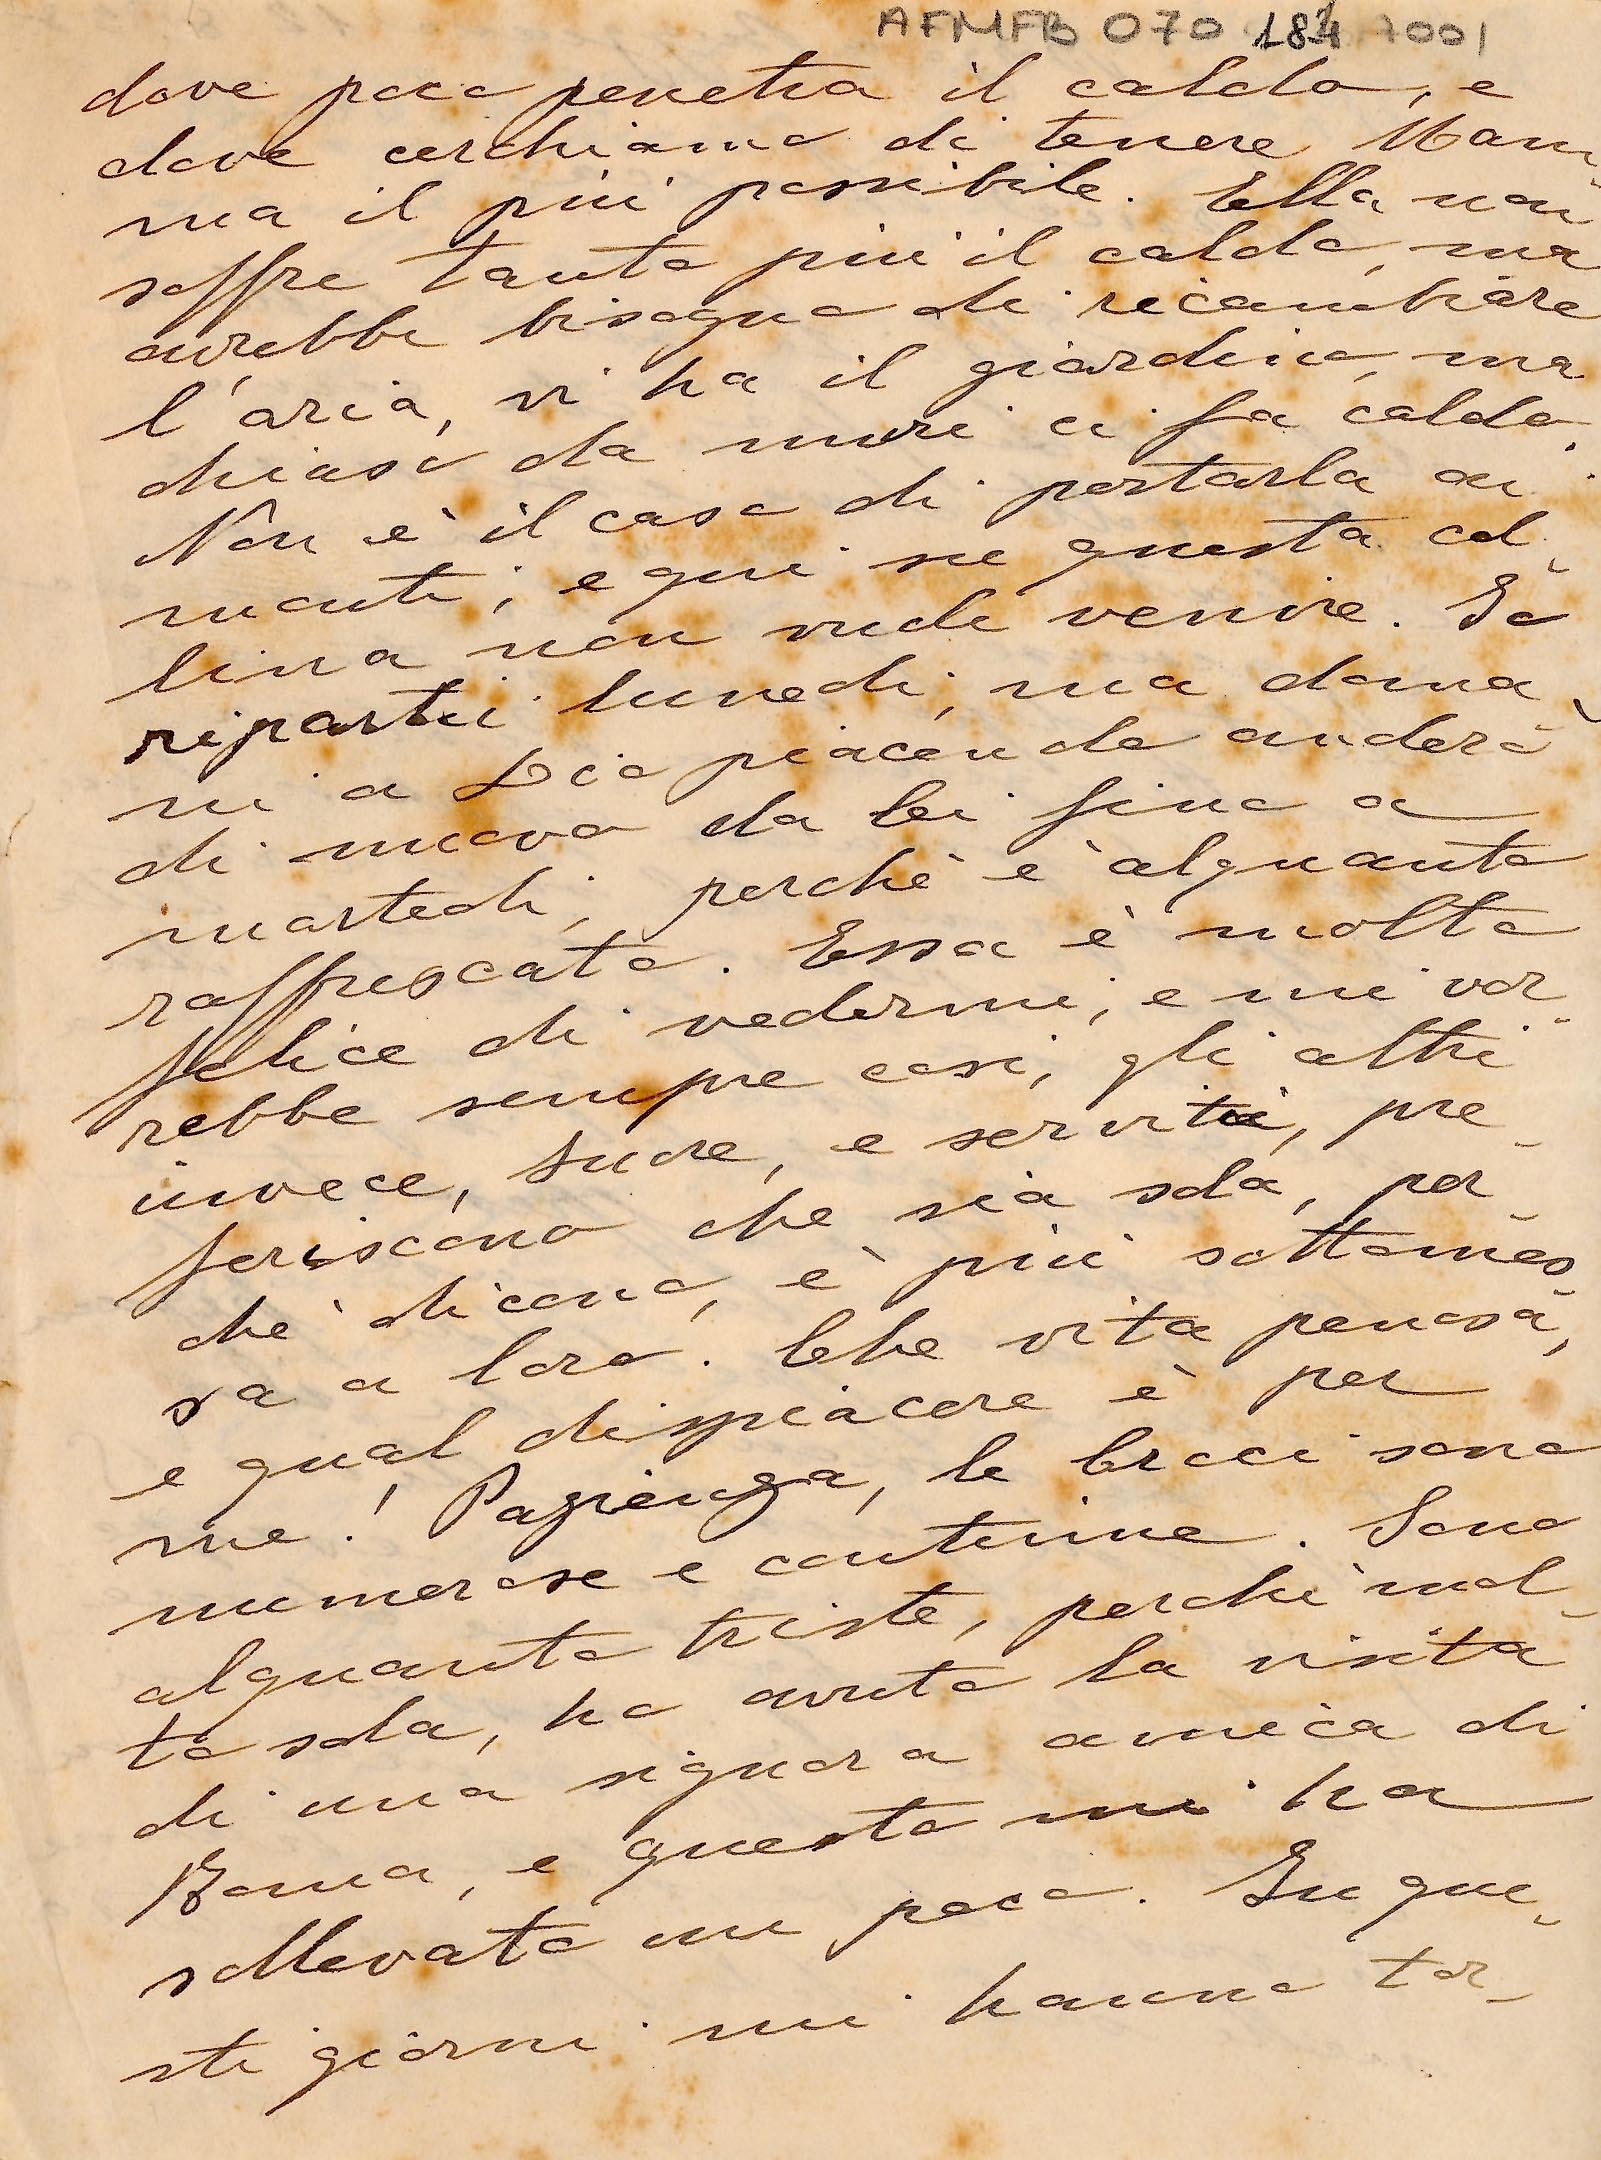 AFMFB 070 184 7001
dove poco penetra il caldo, e
dove cerchiamo di tenere Mam-
ma il più possibile. Ella non
soffre tanto più il caldo, ma
avrebbe bisogno di ricambiare
l'aria, vi ha il giardino, ma
chiuso da muri ci fa caldo.
Non è il caso di portarla ai
monti; e qui su questa col-
lina non vuole venire. Io
ripartii lunedi, ma doma-
ni a Dio piacendo anderò
di nuovo da lei fino a
martedi, perchè è alquanto
raffrescato. Essa è molto
felice di vedermi, e mi vor-
rebbe sempre così, gli altri
invece, suore, e servitù, pre-
feriscono che sia sola, per-
chè dicono, è più sottomes-
sa a loro. Che vita penosa,
e qual dispiacere è per
me! Pazienza, le Croci sono
numerose e continue. Sono
alquanto triste, perchè mol-
to sola, ho avuto la visita
di una signora amica di
Roma, e questo mi ha
sollevato un poco. In que-
sti giorni mi hanno tor-